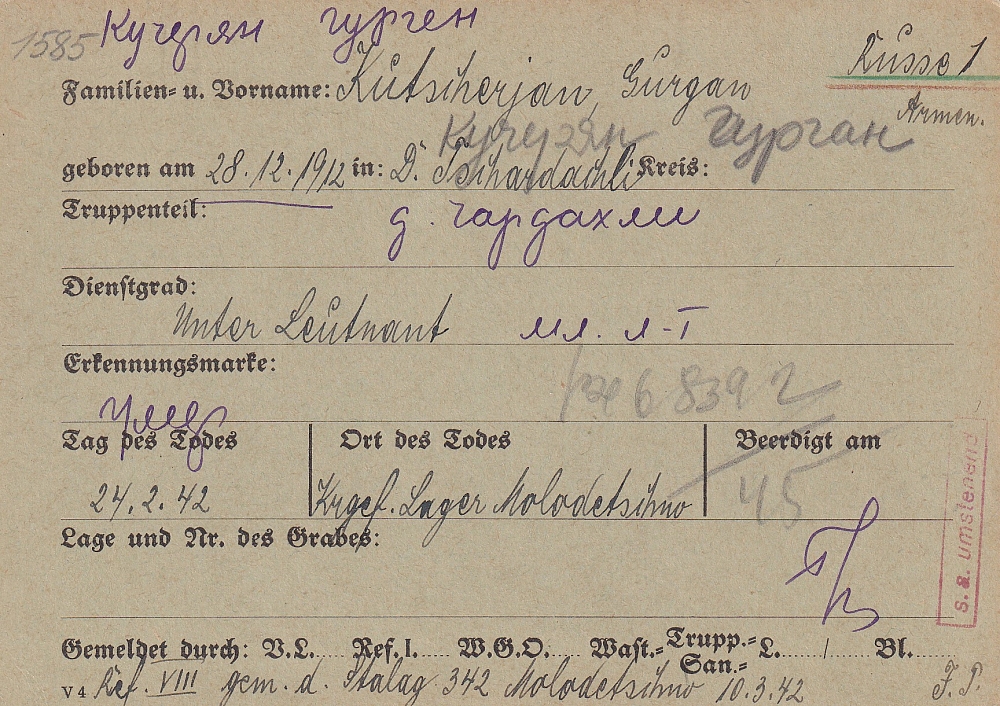 1585 Кучерян Гурген
Russe 1
Familien= u. Vorname: Kutscherjan, Gurgan
Armen.
Кучерян Гурган
geboren am 28.12.1912 in: D. Tschardachli Kreis:
Truppenteil:
д. Чардахли
Dienstgrad:
Unter Leutnant мл. л-т
Erkennungsmarke:
68392
умер
Tag des Todes Ort des Todes Beerdigt am
24.2.42 Krgef. Lager Molodetschno 45
Lage und Nr. des Grabes:
s. a. umstehend
Gemeldet durch: V.L. Ref. I. W.G.O. Wast.= Trupp.= San.= L. / Bl.
V 4 Ref. VIII gem. d. Stalag 342 Molodetschno 10.3.42 F. P.